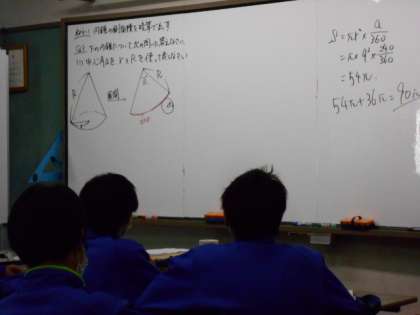 円錐の側面積を計算で出す
下の円錐について次の問いに答えなさい
(1) 中心角を r と R を使って表しなさい
R
r
展開
R
S = πr² × a/360
= π × 9² × 240/360
= 54π
54π + 36π = 90π